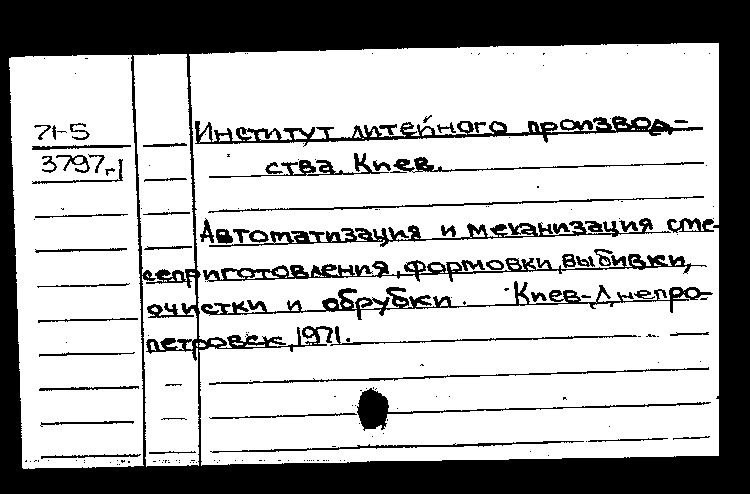 71-5
3797г1
Институт литейного производ-
ства. Киев.
Автоматизация и механизация сме-
сеприготовления, формовки, выбивки,
очистки и обрубки. Киев-Днепро-
петровск, 1971.